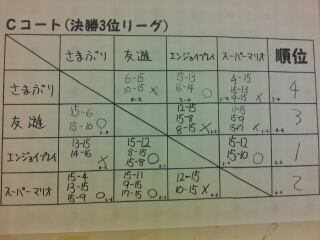 Cコート(決勝3位リーグ)
さまぶり 友遊 エンジョイプレイ スーパーマリオ 順位
さまぶり 6-15 15-13 4-15
10-15 × 16-14 ○ 15-13
0-2 2-0 9-15 × 1-2 4
友遊 15-6 12-15 11-15
15-10 ○ 15-8 15-9
2-0 8-15 × 1-2 15-17 × 1-2 3
エンジョイプレイ 13-15 15-12 15-12
14-16 × 8-15 15-10 ○
0-2 15-8 ○ 2-1 2-0 1
スーパーマリオ 15-4 15-11 12-15
13-15 9-15 10-15 × 0-2
15-9 ○ 2-1 17-15 ○ 2-1 2